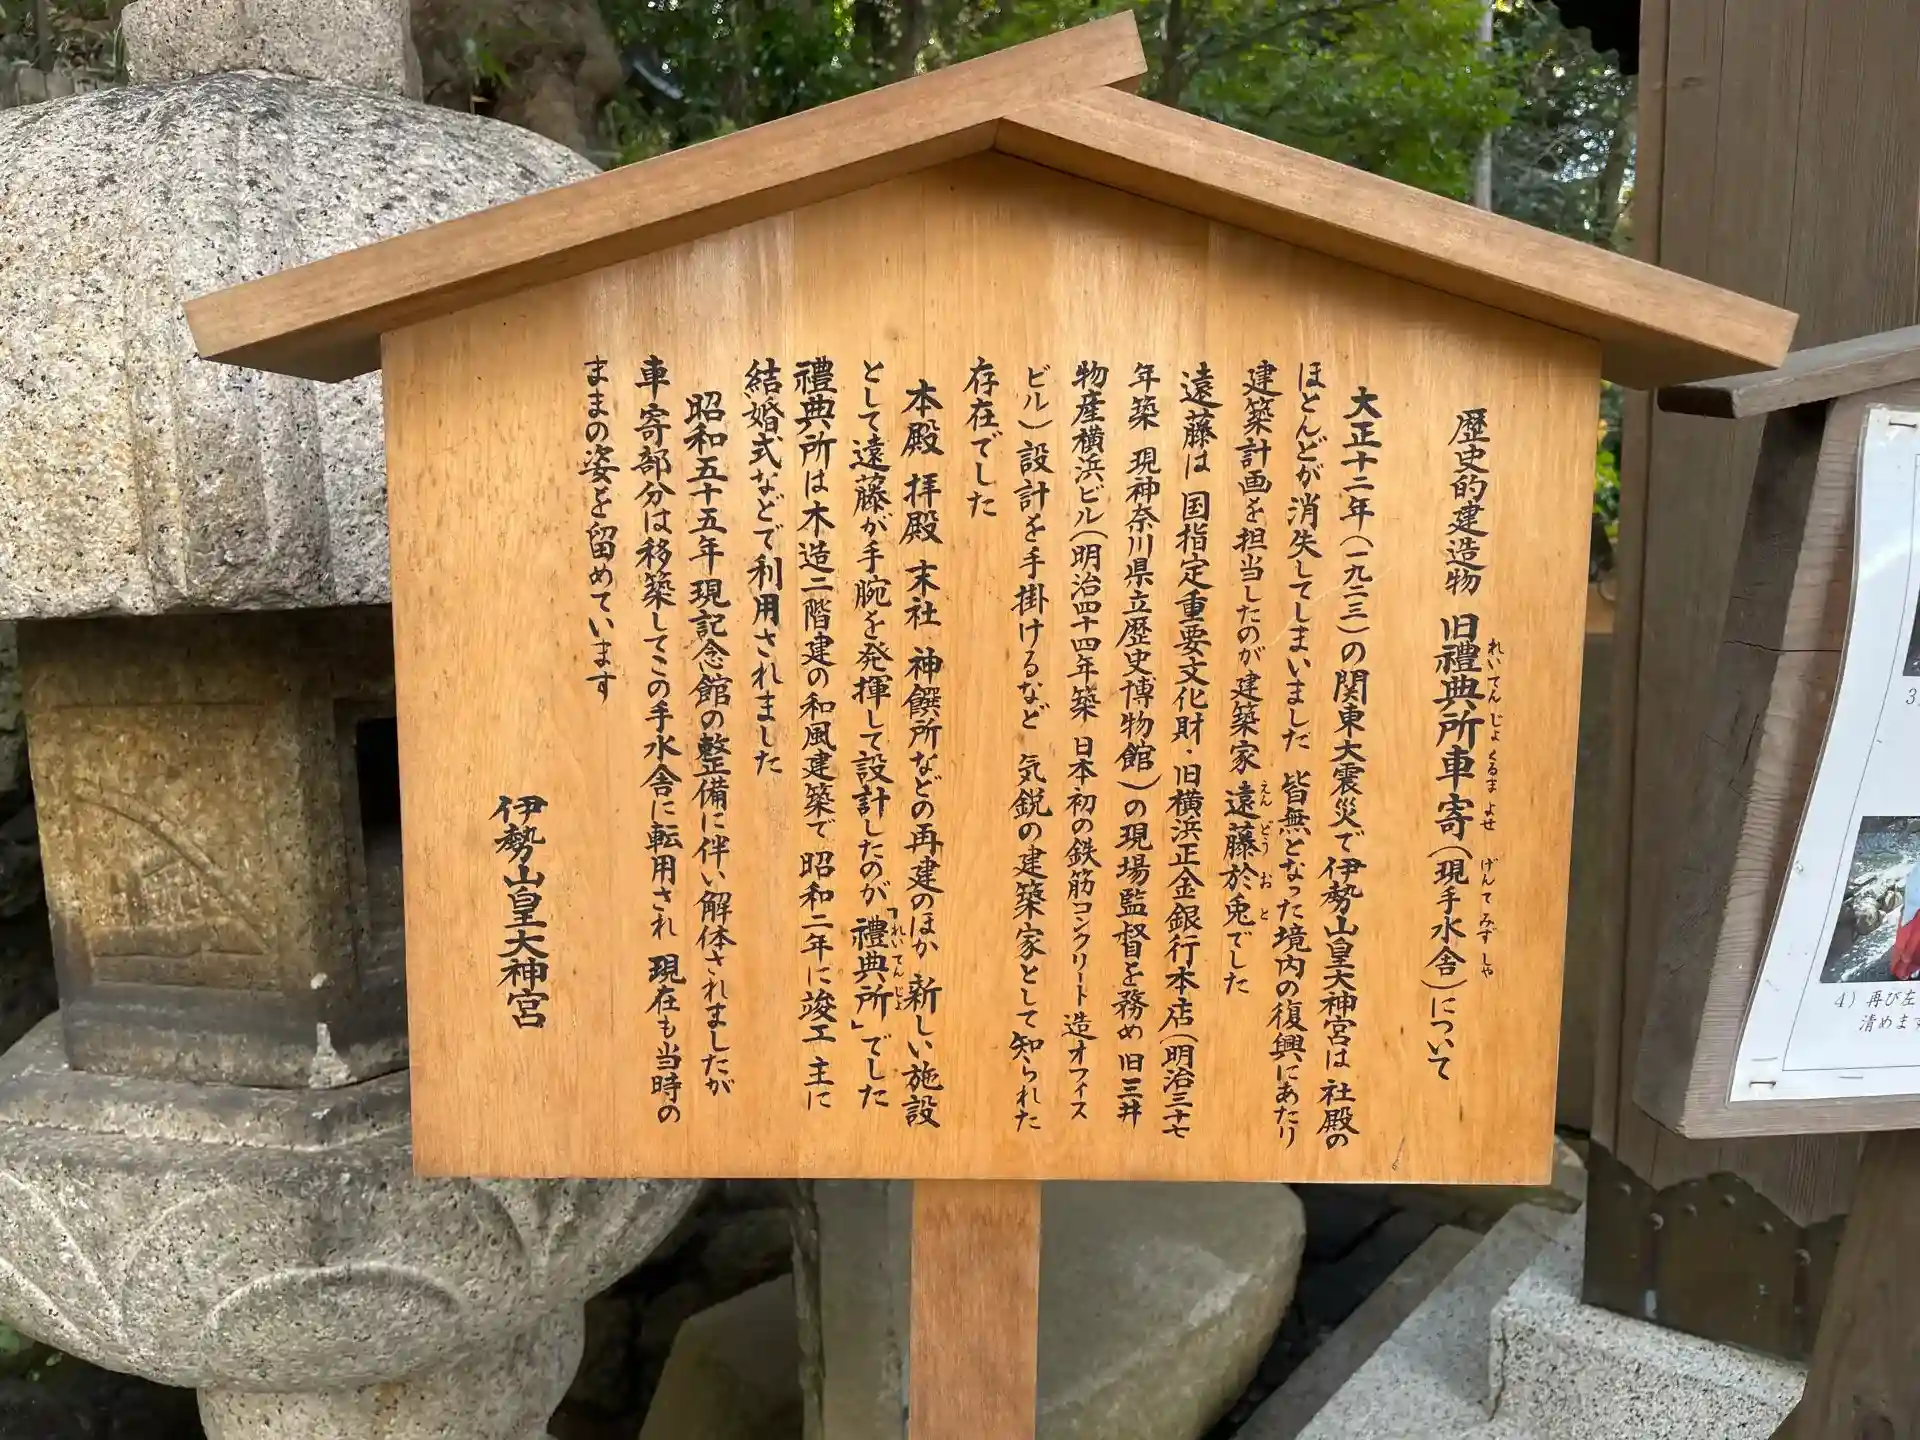 歴史的建造物 旧禮典所車寄(現手水舎)について
れいてんじょくるまよせ げんてみずしゃ
大正十二年(一九二三)の関東大震災で伊勢山皇大神宮は 社殿の
ほとんどが消失してしまいました 皆無となった境内の復興にあたり
建築計画を担当したのが建築家 遠藤於兎でした
えんどうおと
遠藤は 国指定重要文化財・旧横浜正金銀行本店(明治三十七
年築 現神奈川県立歴史博物館)の現場監督を務め 旧三井
物産横浜ビル(明治四十四年築 日本初の鉄筋コンクリート造オフィス
ビル)設計を手掛けるなど 気鋭の建築家として知られた
存在でした
本殿 拝殿 末社 神饌所などの再建のほか 新しい施設
として遠藤が手腕を発揮して設計したのが「禮典所」でした
れいてんじょ
禮典所は木造二階建の和風建築で 昭和二年に竣工 主に
結婚式などで利用されました
昭和五十五年 現記念館の整備に伴い解体されましたが
車寄部分は移築してこの手水舎に転用され 現在も当時の
ままの姿を留めています
伊勢山皇大神宮
4)再び左
清めます
3